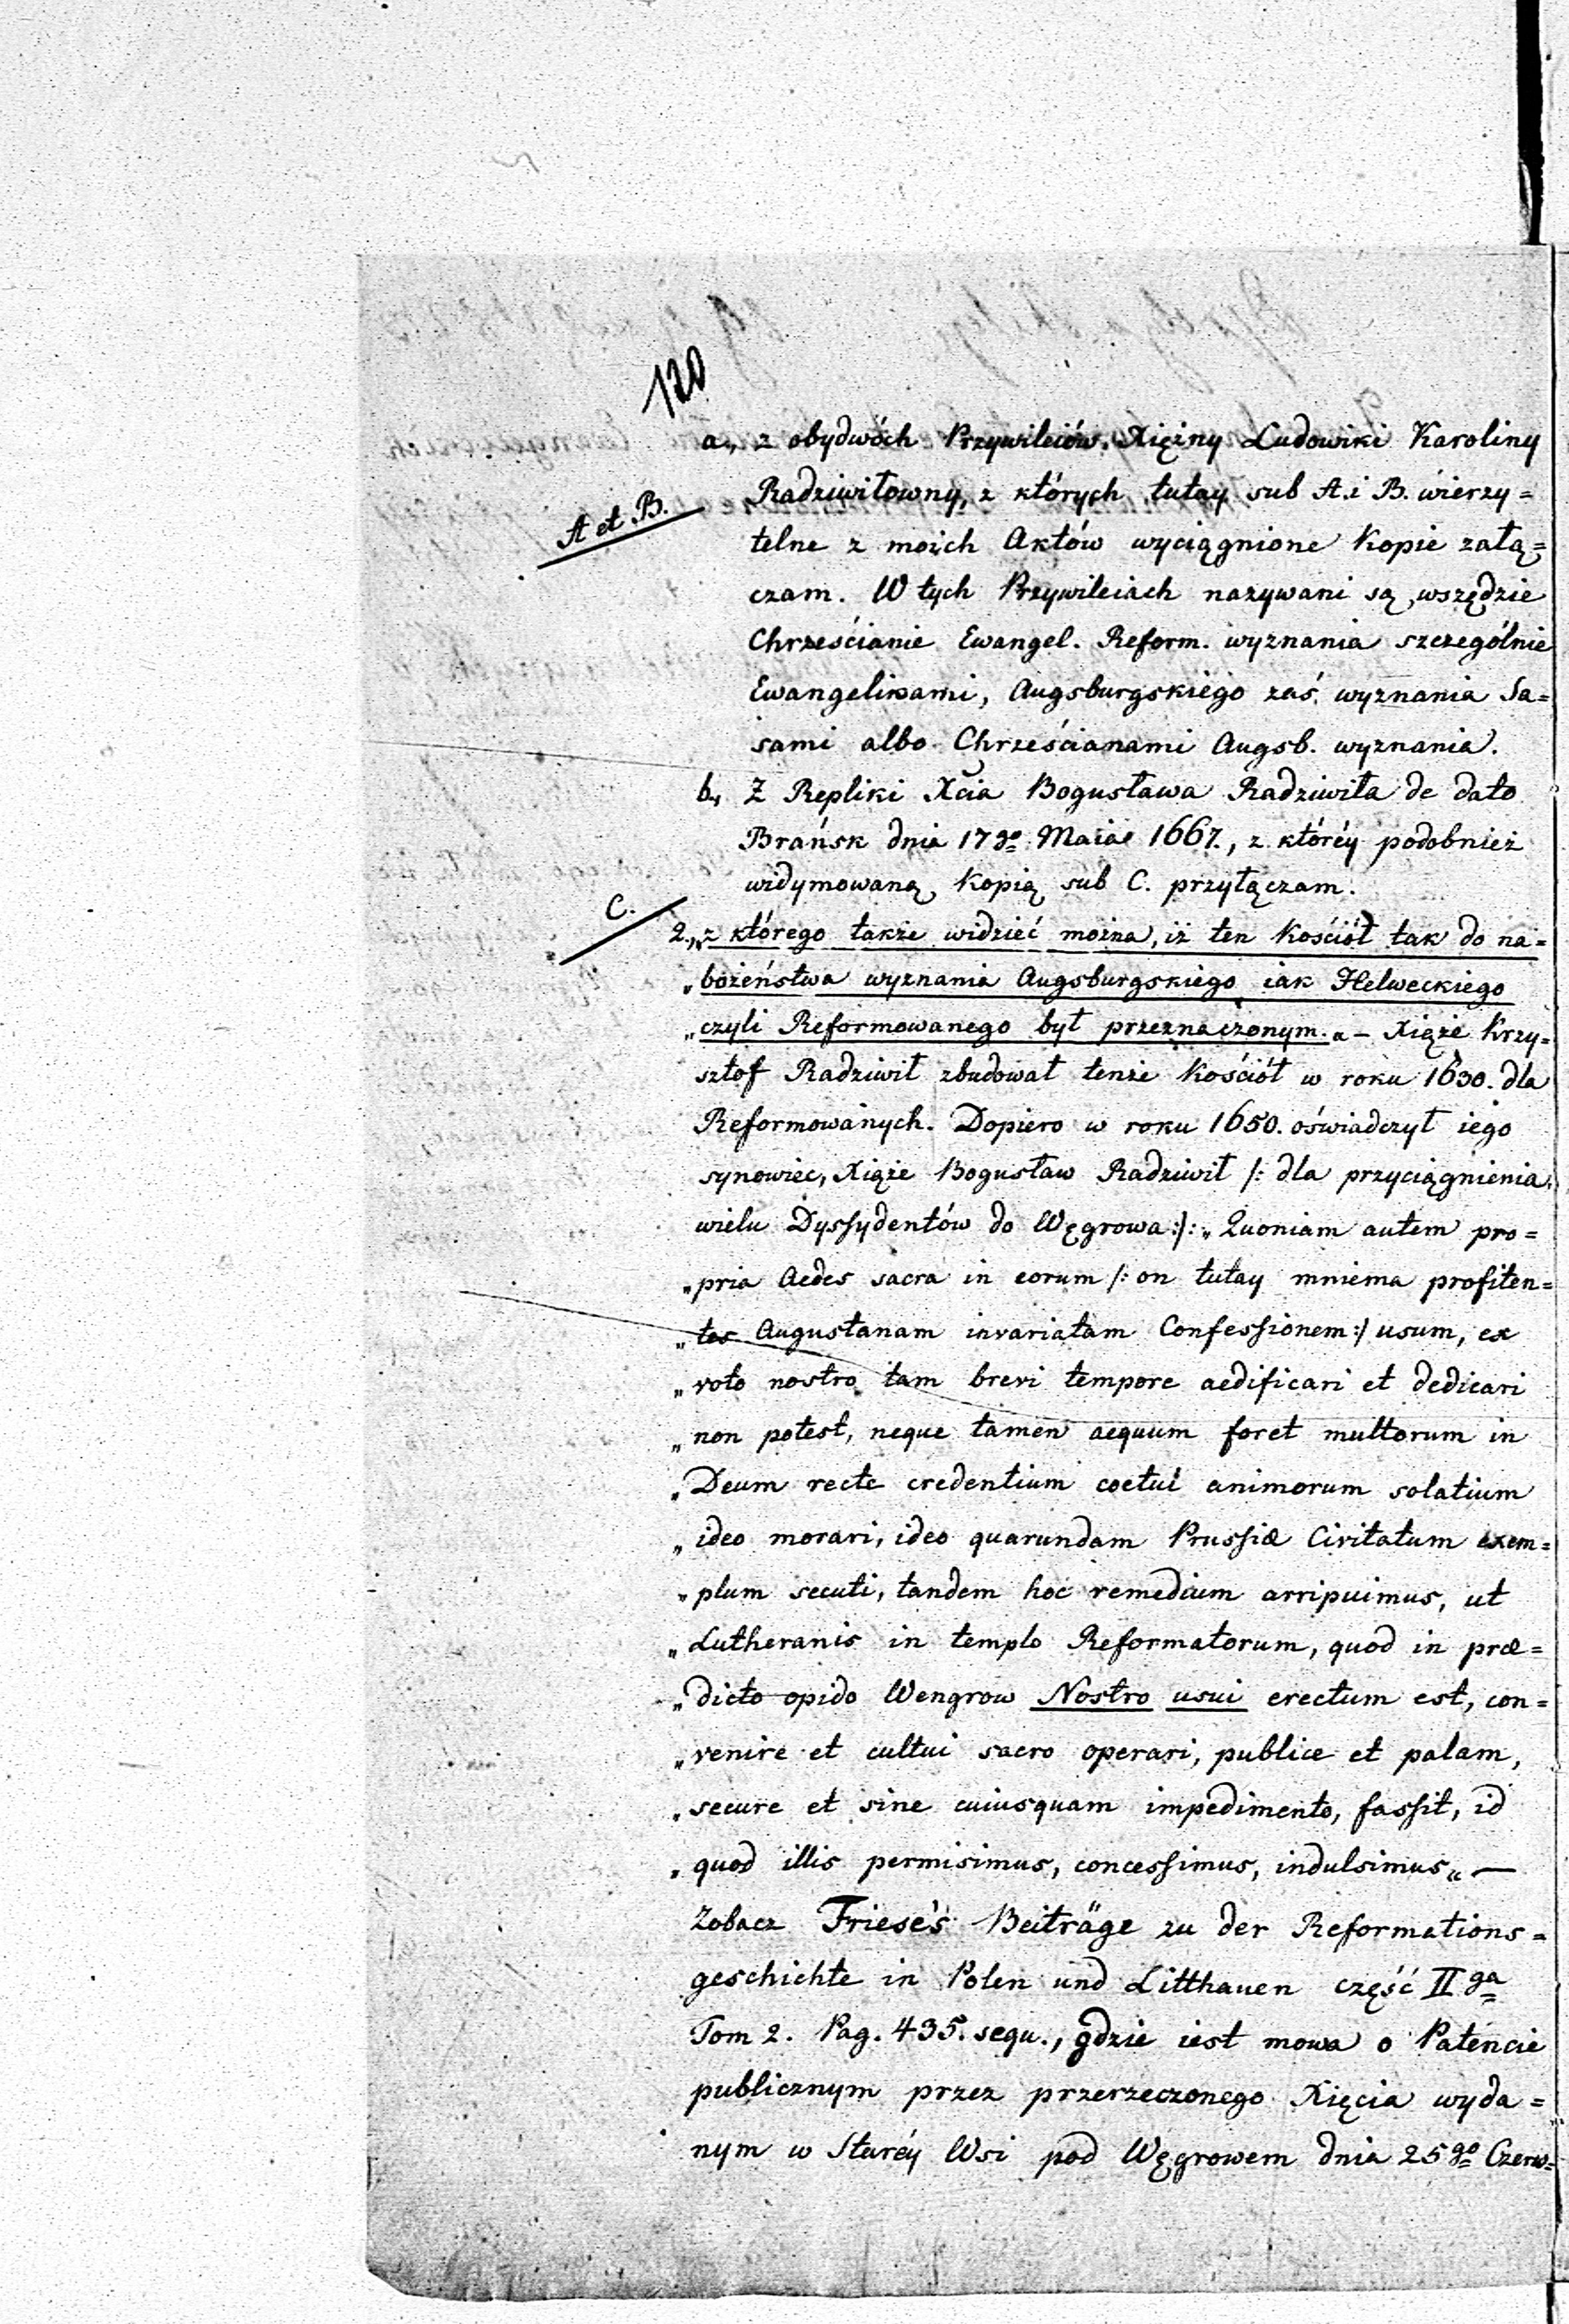 120
a., z obydwóch Przywileiów, Xiężny Ludowiki Karoliny
A et B.
Radziwiłowny, z których tutay sub A. i B. wierzy=
telne z moich Aktów wyciągnione Kopie załą=
czam. W tych Przywileiach nazywani są, wszędzie
Chrześcianie Ewangel. Reform. wyznania szczególnie
Ewangelikami, Augsburgskiego zaś wyznania Sa=
sami albo Chrześcianami Augsb. wyznania.
b., Z Repliki Xcia Bogusława Radziwiła de dato
Brańsk dnia 17go Maia 1667., z któréy podobnież
widymowaną Kopią sub C. przyłączam.
C.
2., „z którego także widzieć można, iż ten Kościół tak do na=
„bożeństwa wyznania Augsburgskiego iak Helweckiego
„czyli Reformowanego był przeznaczonym.“ – Xiąże Krzy=
sztof Radziwił zbudował tenże Kościół w roku 1630. dla
Reformowanych. Dopiero w roku 1650. oświadczył iego
synowiec, Xiąże Bogusław Radziwił /: dla przyciągnienia
wielu Dyssydentów do Węgrowa :/: „Quoniam autem pro=
„pria Aedes sacra in eorum /: on tutay mniema profiten=
„tes Augustanam invariatam Confessionem :/ usum, ex
„voto nostro tam brevi tempore aedificari et dedicari
„non potest, neque tamen aequum foret multorum in
„Deum recte credentium coetui animorum solatium
„ideo morari, ideo quarundam Prussiæ Civitatum exem=
„plum secuti, tandem hoc remedium arripuimus, ut
„Lutheranis in templo Reformatorum, quod in præ=
„dicto opido Wengrow Nostro usui erectum est, con=
„venire et cultui sacro operari, publice et palam,
„secure et sine cuiusquam impedimento, fassit, id
„quod illis permisimus, concessimus, indulsimus“ —
Zobacz Friese's Beiträge zu der Reformations=
geschichte in Polen und Litthauen część IIga
Tom 2. Pag. 435. sequ., gdzie iest mowa o Patencie
publicznym przez przerzeczonego Xięcia wyda=
nym w Staréy Wsi pod Węgrowem dnia 25go Czerw=